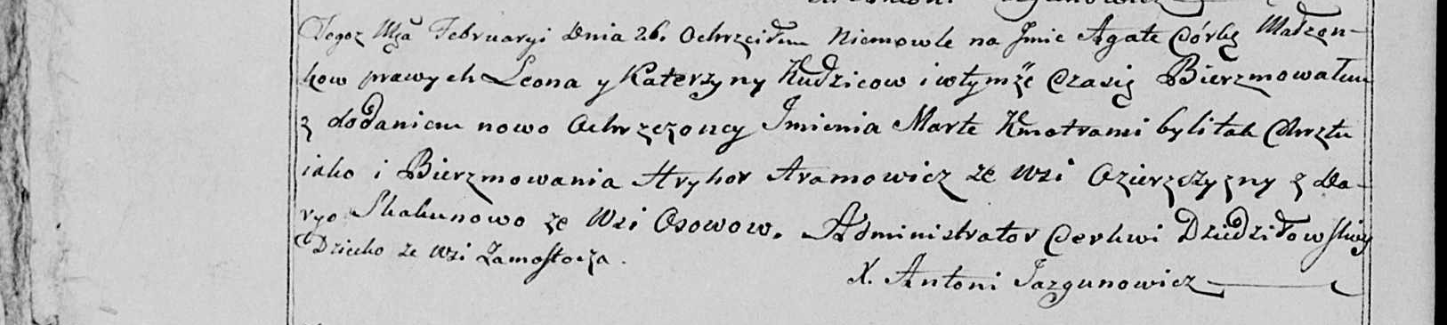 Tegoż Mca Februaryi Dnia 26. Ochrzciłem Niemowle na Jmie Agate Córkę Małżen-
kow prawych Leona y Katerzyny Kudzicow i wtymże Czasię Bierzmowałem
z dodaniem nowo Ochrzczoney Jmienia Marte Kmotrami byli tak Chrztu
iako i Bierzmowania Hryhor Aramowicz ze Wsi Ozierzczyzny z Da-
ryo Skakunowo ze Wsi Osowow. Administrator Cerkwi Dziedziłowskiey
Dziecko ze Wsi Zamostocza.
X. Antoni Jazgunowicz